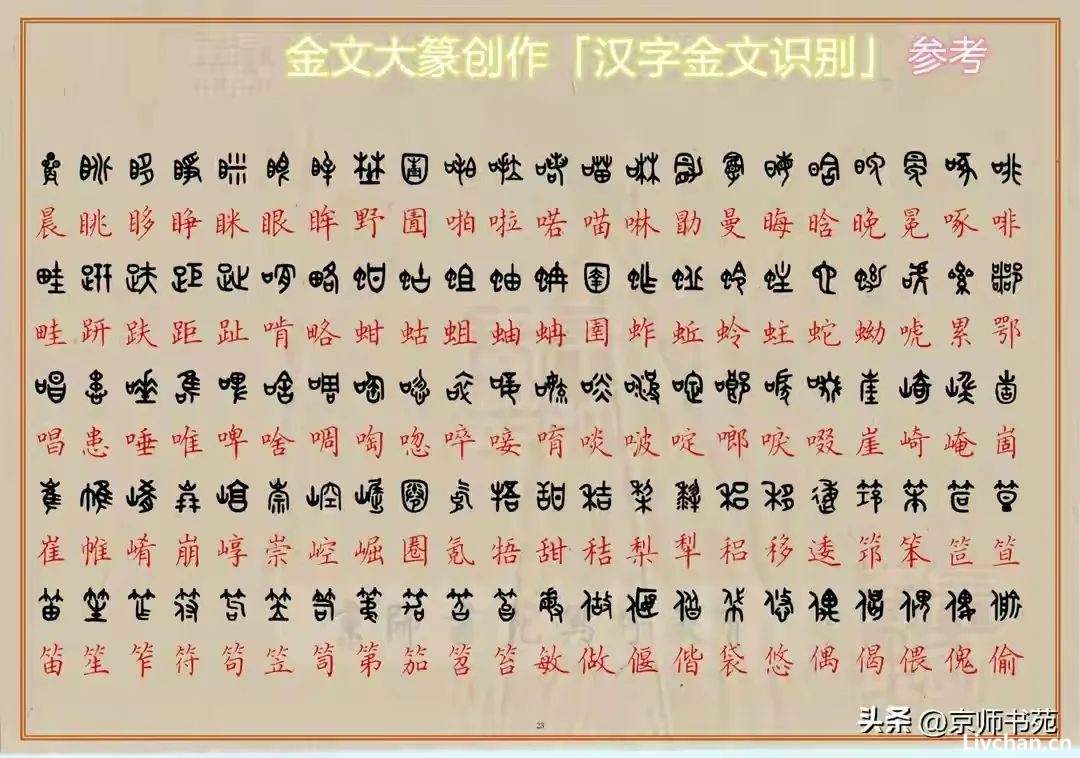 金文大篆创作「汉字金文识别」 参考
晨眺眵睁眯眼眸野圊啪啦喏喵啉勖曼晦晗晚冕啄啡
畦趼趺距趾啃略蚶蛄蛆蚰蚺圉蚱蚯蛉蛀蛇蚴唬累鄂
唱患唾唯啤啥啁啕唿啐唼唷啖啵啶啷唳啜崖崎崦崮
崔帷崤崩崞崇崆崛圈氪牾甜秸梨犁稆移逶筇笨笸笪
笛笙笮符笱笠笥第笳笤笞敏做偃偕袋悠偶偈偎傀偷
23
头条 @京师书苑
Livchan.cn